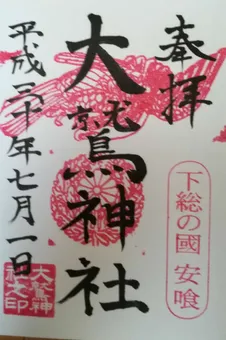 奉拝
下総の國 安喰
大鷲神社
平成三十年七月一日
大鷲神社之印